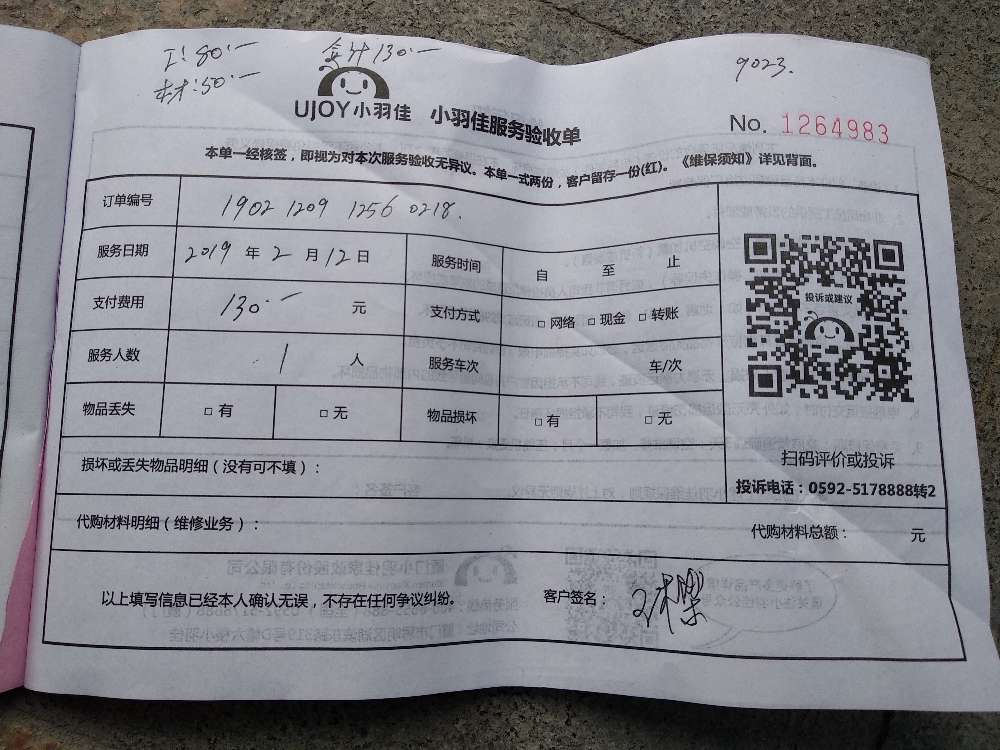 工:80.一
合计130.一
9023.
材:50.一
UJOY小羽佳 小羽佳服务验收单
No. 1264983
本单一经核签，即视为对本次服务验收无异议。本单一式两份，客户留存一份(红)。《维保须知》详见背面。
订单编号 1902 1209 1256 0218.
服务日期 2019 年 2 月 12 日 服务时间 自 至 止
支付费用 130.一 元 支付方式 □ 网络 □ 现金 □ 转账
服务人数 1 人 服务车次 车/次
物品丢失 □ 有 □ 无 物品损坏 □ 有 □ 无
投诉或建议
扫码评价或投诉
投诉电话：0592-5178888转2
损坏或丢失物品明细（没有可不填）：
代购材料明细（维修业务）： 代购材料总额： 元
以上填写信息已经本人确认无误，不存在任何争议纠纷。 客户签名：